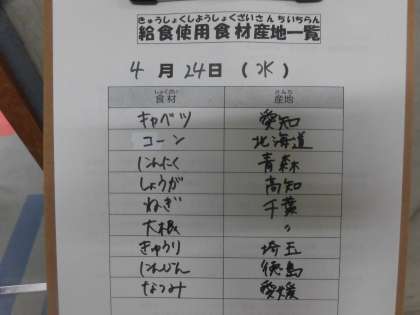 きゅうしょくしようしょくざいさんちいちらん
給食使用食材産地一覧
4月24日(水)
しょくざい さんち
食材 産地
キャベツ 愛知
コーン 北海道
にんにく 青森
しょうが 高知
ねぎ 千葉
大根 〃
きゅうり 埼玉
にんじん 徳島
なつみ 愛媛